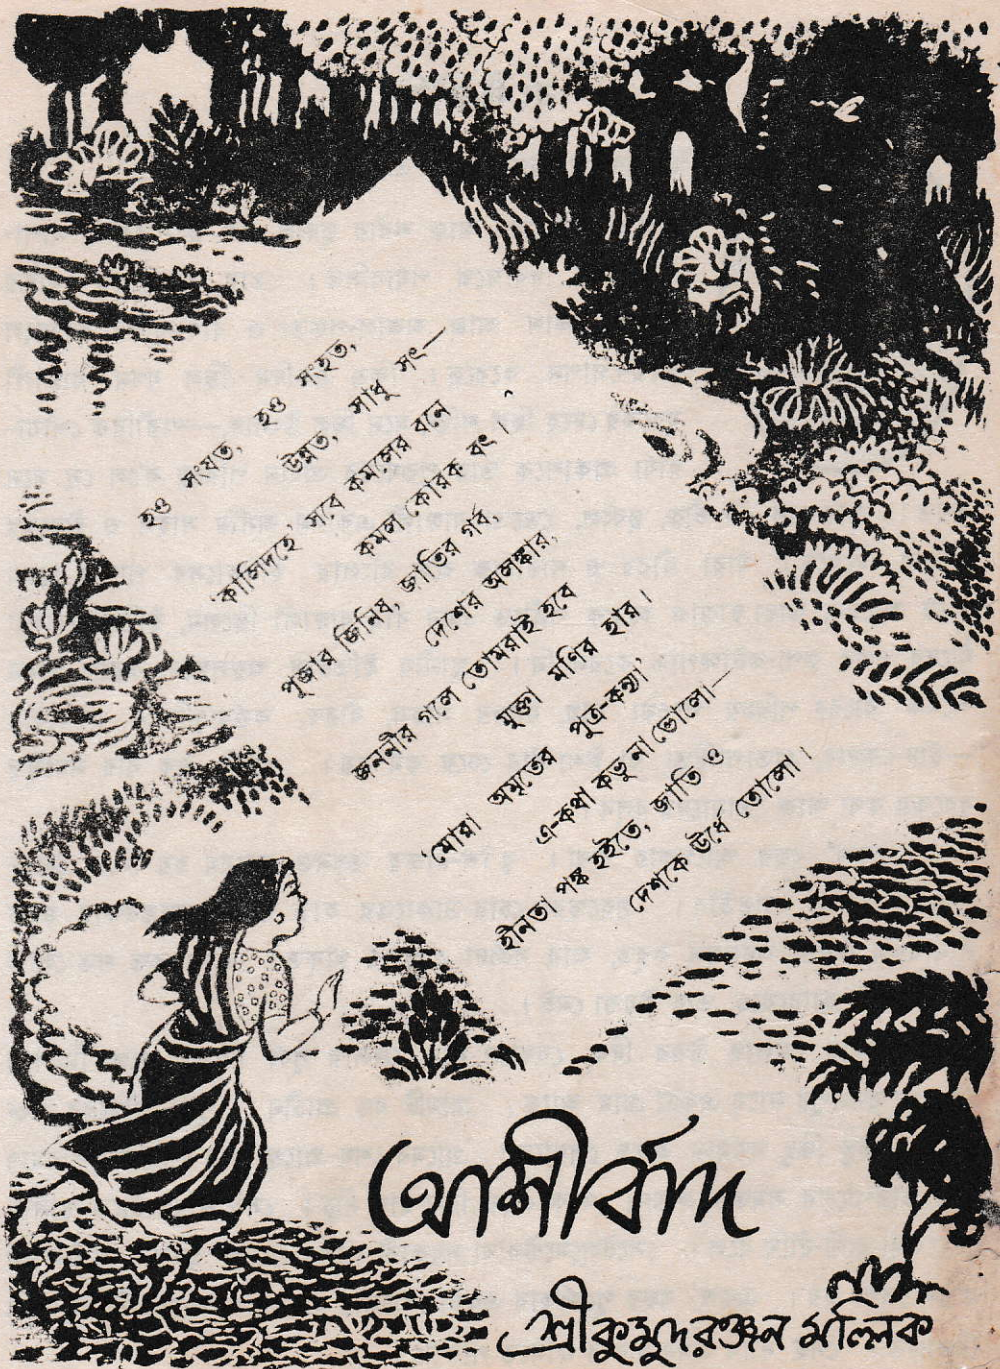 হও সংযত, হও সংহত,
উন্নত, সাধু সৎ—
'কালিদহে সবে কমলের বনে
কমল কোরক বৎ।
পূজার জিনিষ, জাতির গর্ব,
দেশের অলঙ্কার,
জননীর গলে তোমরাই হবে
মুক্তা মণির হার।
'মোরা অমৃতের পুত্র-কন্যা'
এ-কথা কভু না ভোলো—
হীনতা পঙ্ক হইতে, জাতি ও
দেশকে ঊর্ধে তোলো।
আশীর্বাদ
শ্রীকুমুদরঞ্জন মল্লিক